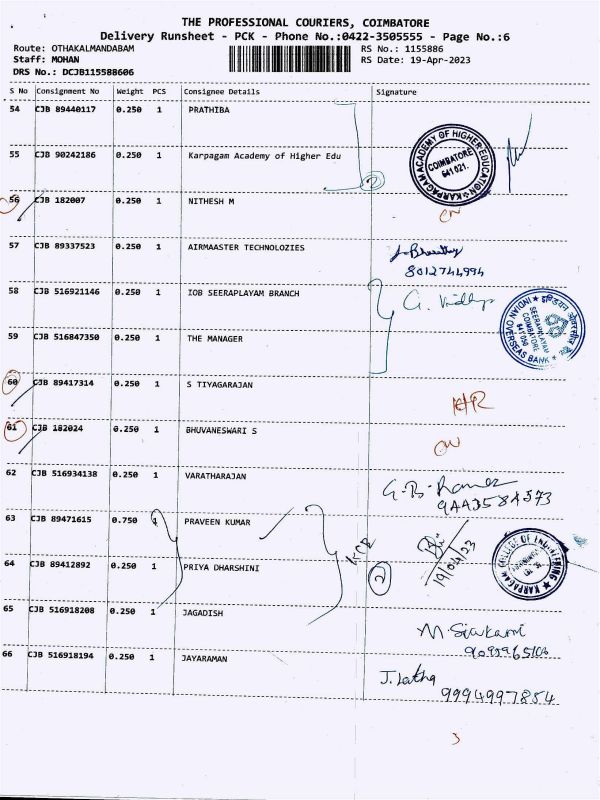 THE PROFESSIONAL COURIERS, COIMBATORE
Delivery Runsheet - PCK - Phone No.:0422-3505555 - Page No.:6
Route: OTHAKALMANDABAM
RS No.: 1155886
Staff: MOHAN
RS Date: 19-Apr-2023
DRS No.: DCJB115588606
S No Consignment No Weight PCS Consignee Details Signature
54 CJB 89440117 0.250 1 PRATHIBA
55 CJB 90242186 0.250 1 Karpagam Academy of Higher Edu
2
KARPAGAM ACADEMY OF HIGHER EDUCATION
COIMBATORE
641 021.
56 CJB 182007 0.250 1 NITHESH M
57 CJB 89337523 0.250 1 AIRMAASTER TECHNOLOZIES
8012744994
58 CJB 516921146 0.250 1 IOB SEERAPLAYAM BRANCH
INDIAN OVERSEAS BANK
SEERAPALAYAM
COIMBATORE
59 CJB 516847350 0.250 1 THE MANAGER
60 CJB 89417314 0.250 1 S TIYAGARAJAN
61 CJB 182024 0.250 1 BHUVANESWARI S
62 CJB 516934138 0.250 1 VARATHARAJAN
63 CJB 89471615 0.750 1 PRAVEEN KUMAR
19/04/23
KARPAGAM COLLEGE OF ENGINEERING
64 CJB 89412892 0.250 1 PRIYA DHARSHINI
2
65 CJB 516918208 0.250 1 JAGADISH
66 CJB 516918194 0.250 1 JAYARAMAN
J. Latha
9994997854
3